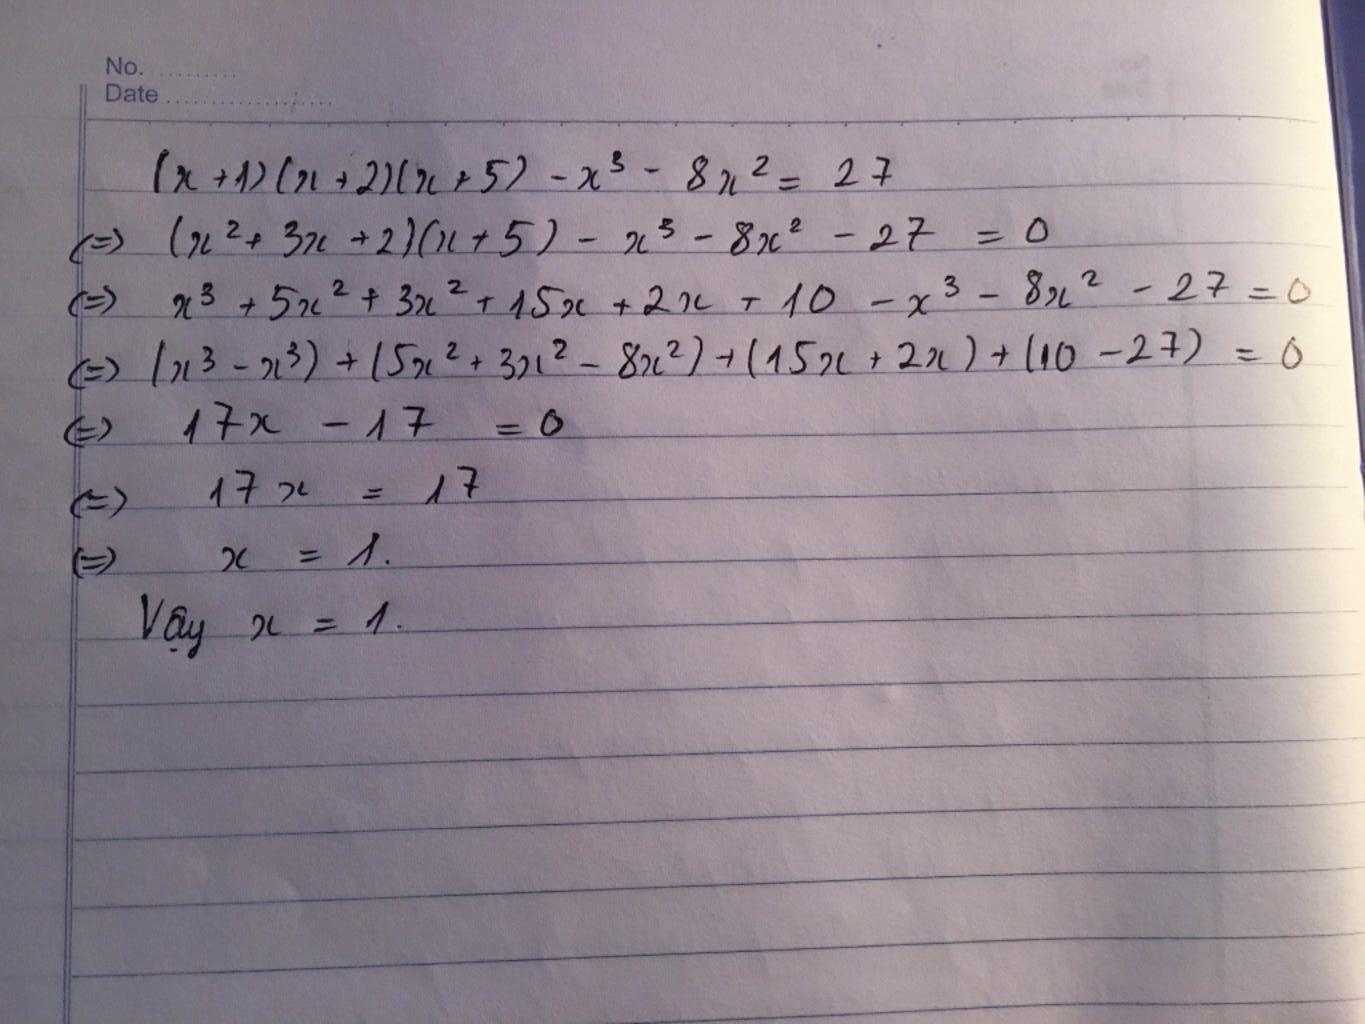 No. .........
Date ..................
(x+1)(x+2)(x+5) - x³ - 8x² = 27
(=) (x² + 3x + 2)(x + 5) - x³ - 8x² - 27 = 0
(=) x³ + 5x² + 3x² + 15x + 2x + 10 - x³ - 8x² - 27 = 0
(=) (x³ - x³) + (5x² + 3x² - 8x²) + (15x + 2x) + (10 - 27) = 0
(=) 17x - 17 = 0
(=) 17x = 17
(=) x = 1.
Vậy x = 1.